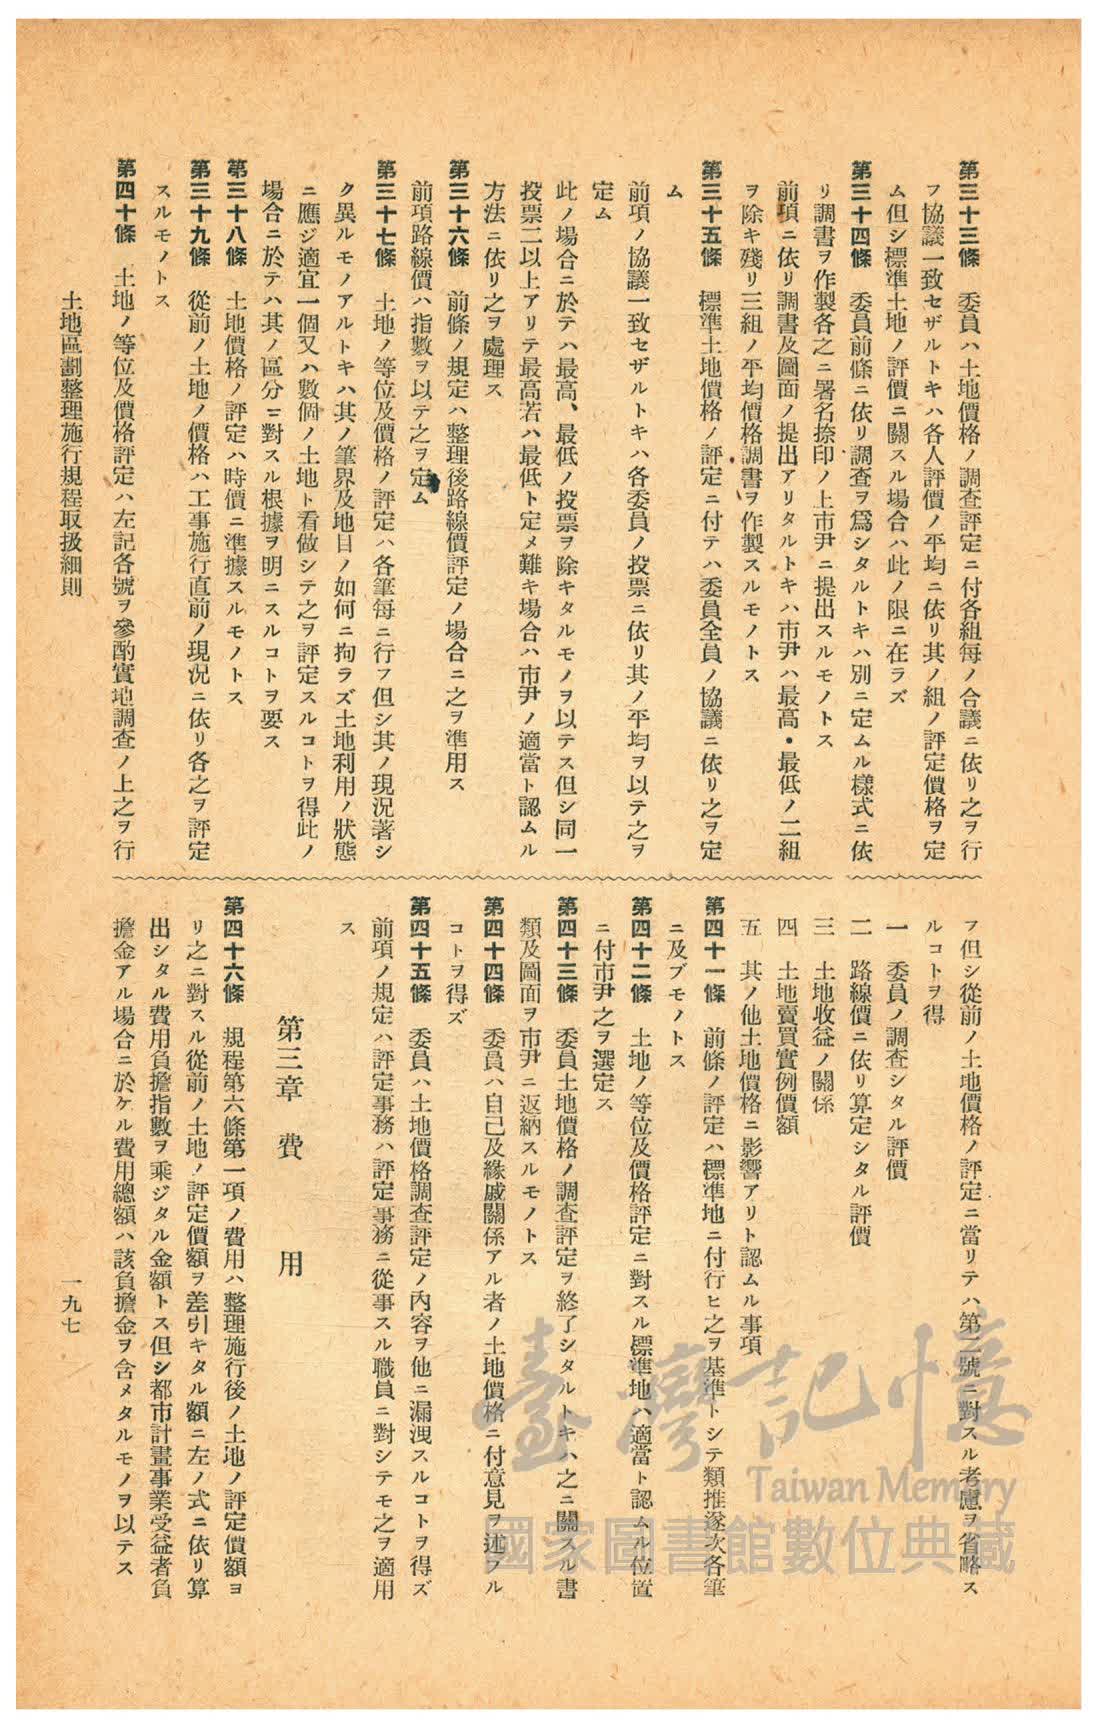 第三十三條　委員ハ土地價格ノ調査評定ニ付各組每ノ合議ニ依リ之ヲ行
フ協議一致セザルトキハ各人評價ノ平均ニ依リ其ノ組ノ評定價格ヲ定
ム但シ標準土地ノ評價ニ關スル場合ハ此ノ限ニ在ラズ
第三十四條　委員前條ニ依リ調查ヲ爲シタルトキハ別ニ定ムル樣式ニ依
リ調書ヲ作製各之ニ署名捺印ノ上市尹ニ提出スルモノトス
前項ニ依リ調書及圖面ノ提出アリタルトキハ市尹ハ最高・最低ノ二組
ヲ除キ殘リ三組ノ平均價格調書ヲ作製スルモノトス
第三十五條　標準土地價格ノ評定ニ付テハ委員全員ノ協議ニ依リ之ヲ定
ム
前項ノ協議一致セザルトキハ各委員ノ投票ニ依リ其ノ平均ヲ以テ之ヲ
定ム
此ノ場合ニ於テハ最高、最低ノ投票ヲ除キタルモノヲ以テス但シ同一
投票二以上アリテ最高若ハ最低ト定メ難キ場合ハ市尹ノ適當ト認ムル
方法ニ依リ之ヲ處理ス
第三十六條　前條ノ規定ハ整理後路線價評定ノ場合ニ之ヲ準用ス
前項路線價ハ指數ヲ以テ之ヲ定ム
第三十七條　土地ノ等位及價格ノ評定ハ各筆每ニ行フ但シ其ノ現況著シ
ク異ルモノアルトキハ其ノ筆界及地目ノ如何ニ拘ラズ土地利用ノ狀態
ニ應ジ適宜一個又ハ數個ノ土地ト看做シテ之ヲ評定スルコトヲ得此ノ
場合ニ於テハ其ノ區分ニ對スル根據ヲ明ニスルコトヲ要ス
第三十八條　土地價格ノ評定ハ時價ニ準據スルモノトス
第三十九條　從前ノ土地ノ價格ハ工事施行直前ノ現況ニ依リ各之ヲ評定
スルモノトス
第四十條　土地ノ等位及價格評定ハ左記各號ヲ參酌實地調查ノ上之ヲ行
フ但シ從前ノ土地價格ノ評定ニ當リテハ第二號ニ對スル考慮ヲ省略ス
ルコトヲ得
一　委員ノ調查シタル評價
二　路線價ニ依リ算定シタル評價
三　土地收益ノ關係
四　土地賣買實例價額
五　其ノ他土地價格ニ影響アリト認ムル事項
第四十一條　前條ノ評定ハ標準地ニ付行ヒ之ヲ基準トシテ類推逐次各筆
ニ及ブモノトス
第四十二條　土地ノ等位及價格評定ニ對スル標準地ハ適當ト認ムル位置
ニ付市尹之ヲ選定ス
第四十三條　委員土地價格ノ調查評定ヲ終了シタルトキハ之ニ關スル書
類及圖面ヲ市尹ニ返納スルモノトス
第四十四條　委員ハ自己及緣戚關係アル者ノ土地價格ニ付意見ヲ述ブル
コトヲ得ズ
第四十五條　委員ハ土地價格調查評定ノ內容ヲ他ニ漏洩スルコトヲ得ズ
前項ノ規定ハ評定事務ハ評定事務ニ從事スル職員ニ對シテモ之ヲ適用
ス
第三章　費　用
第四十六條　規程第六條第一項ノ費用ハ整理施行後ノ土地ノ評定價額ヨ
リ之ニ對スル從前ノ土地ノ評定價額ヲ差引キタル額ニ左ノ式ニ依リ算
出シタル費用負擔指數ヲ乘ジタル金額トス但シ都市計畫事業受益者負
擔金アル場合ニ於ケル費用總額ハ該負擔金ヲ含メタルモノヲ以テス
土地區劃整理施行規程取扱細則
一九七
臺灣記憶
Taiwan Memory
國家圖書館數位典藏